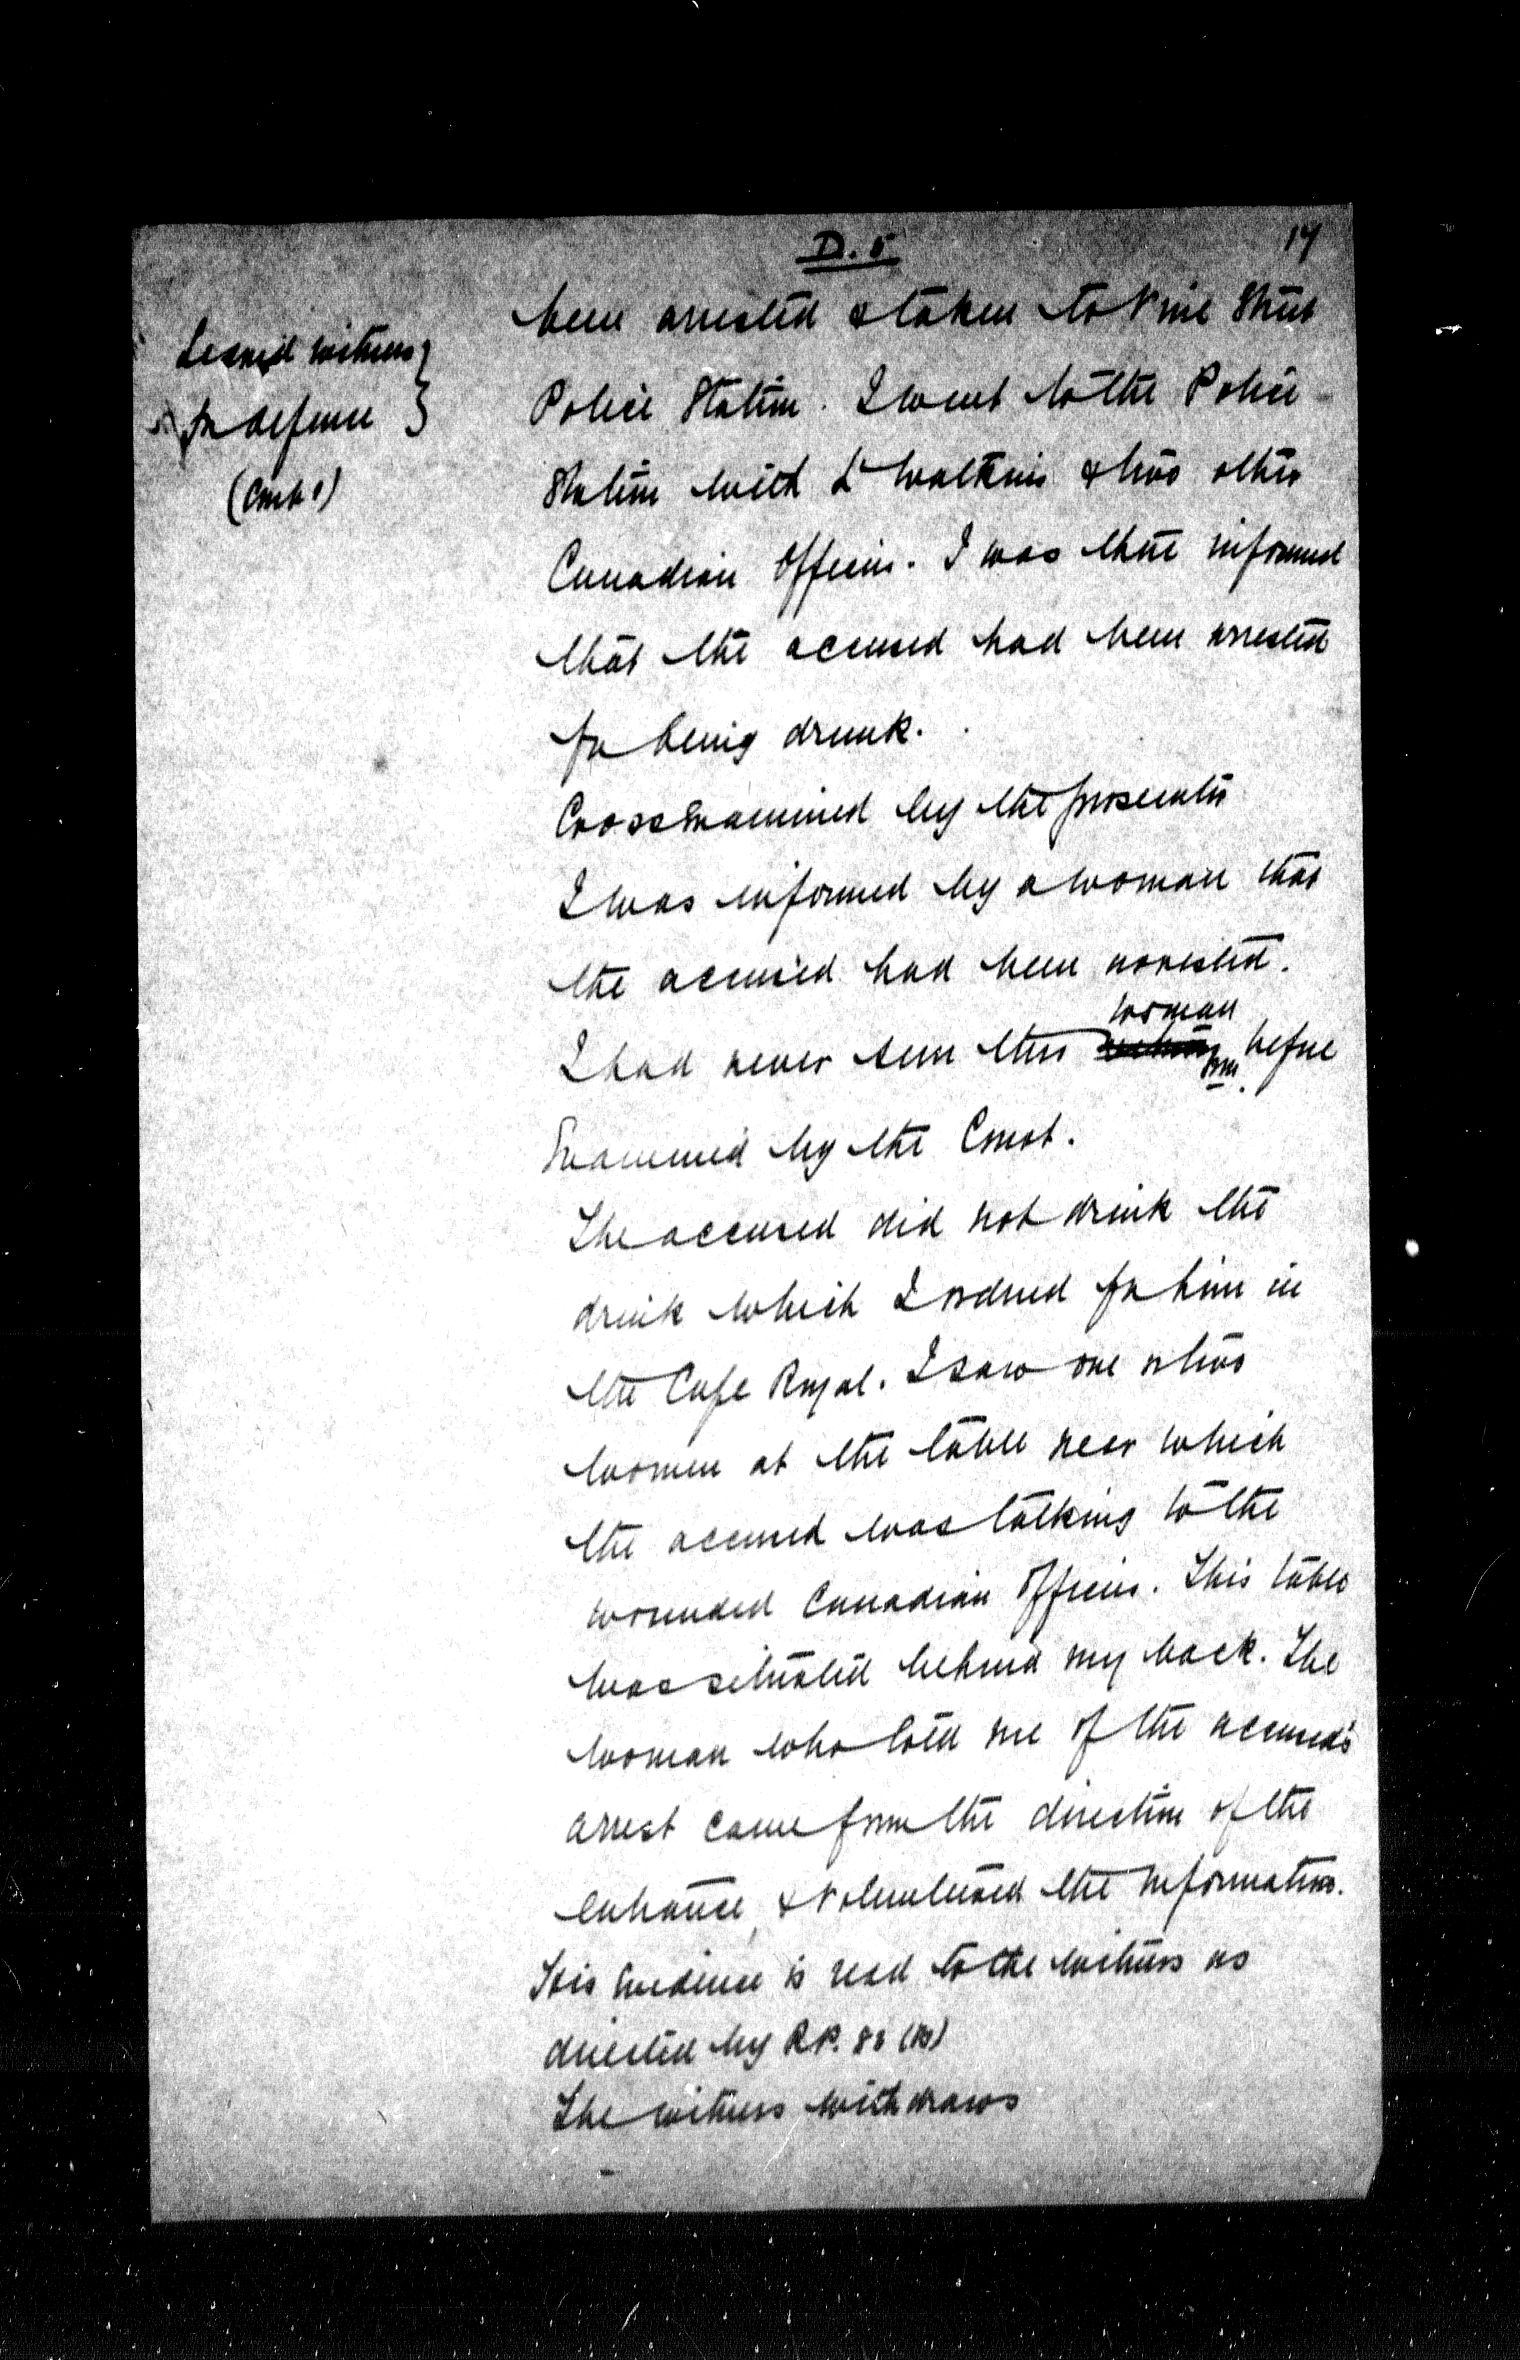 D. 5
17
Second witness
for defence
(Contd)
been arrested & taken to Vine Street
Police Station. I went to the Police
Station with Lt Watkins & two other
Canadian Officers. I was there informed
that the accused had been arrested
for being drunk.
Cross Examined by the prosecutor
I was informed by a woman that
the accused had been arrested.
woman
I had never seen this before
Examined by the Court.
The accused did not drink the
drink which I ordered for him in
the Cafe Royal. I saw one or two
women at the table near which
the accused was talking to the
wounded Canadian Officers. This table
was situated behind my back. The
woman who told me of the accused's
arrest came from the direction of the
entrance & volunteered the information.
His Evidence is read to the witness as
directed by R.P. 83 (B)
The witness withdraws